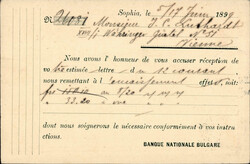 Sophia, 5/17 Juin 189
№ 21081
Monsieur D. C. Lieskardt
XVIII/1 Währinger Gürtel № 51
Vienne
Nous avons l'honneur de vous accuser réception de
votre estimée lettre du 12 courant
nous remettant à l'encaissement effets, soit:
frs au 5/20
" 33.20 à vue
dont nous soignerons le nécessaire conformément à vos instru-
ctions.
BANQUE NATIONALE BULGARE